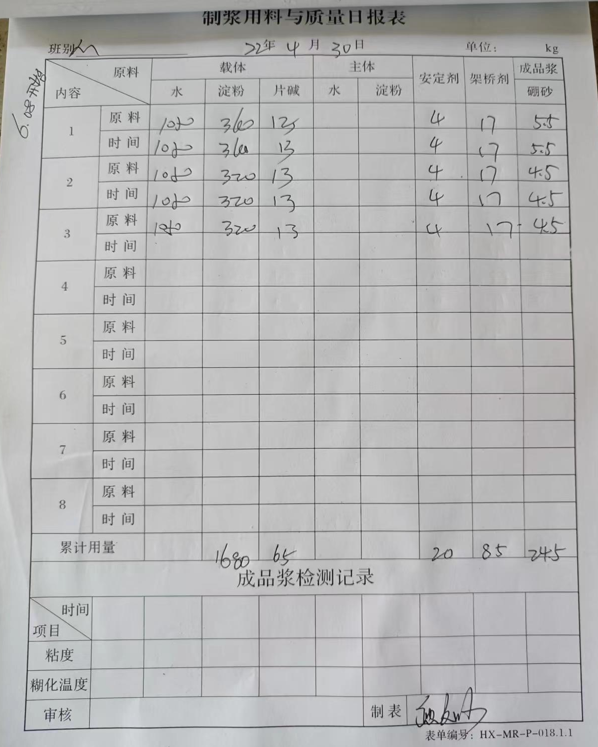 制浆用料与质量日报表
班别 22年 4月 30日 单位： kg
原料 载体 主体 安定剂 架桥剂 成品浆
内容 水 淀粉 片碱 水 淀粉 硼砂
1 原料 1080 360 13 4 17 5.5
时间 1080 360 13 4 17 5.5
2 原料 1080 320 13 4 17 4.5
时间 1080 320 13 4 17 4.5
3 原料 1080 320 13 4 17 4.5
时间
4 原料
时间
5 原料
时间
6 原料
时间
7 原料
时间
8 原料
时间
累计用量 1680 65 20 85 245
成品浆检测记录
时间
项目
粘度
糊化温度
审核 制表
表单编号：HX-MR-P-018.1.1